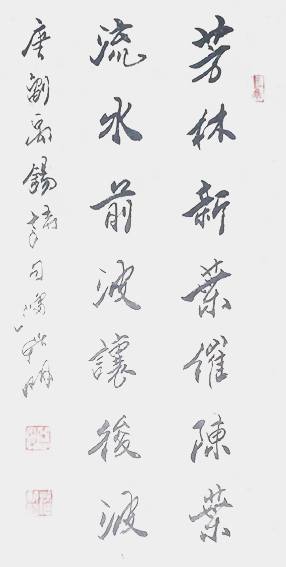 芳林新葉催陳葉
流水前波讓後波
唐劉禹錫詩句